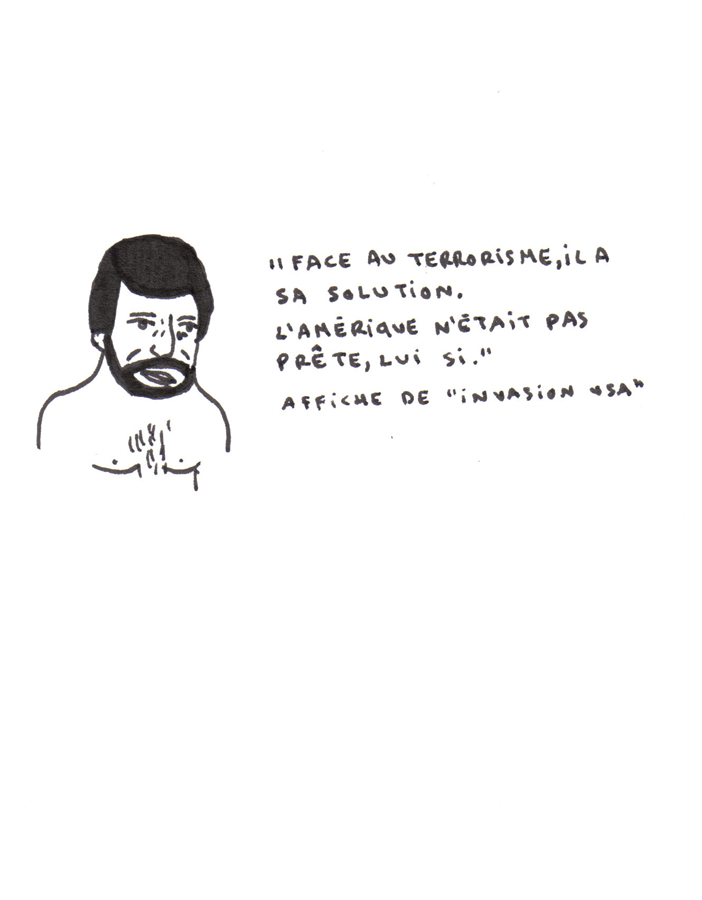 "FACE AU TERRORISME, iL A
SA SOLUTiON.
L'AMÉRiQUE N'ÉTAiT PAS
PRÊTE, LUi Si."
AFFiCHE DE "iNVASiON USA"